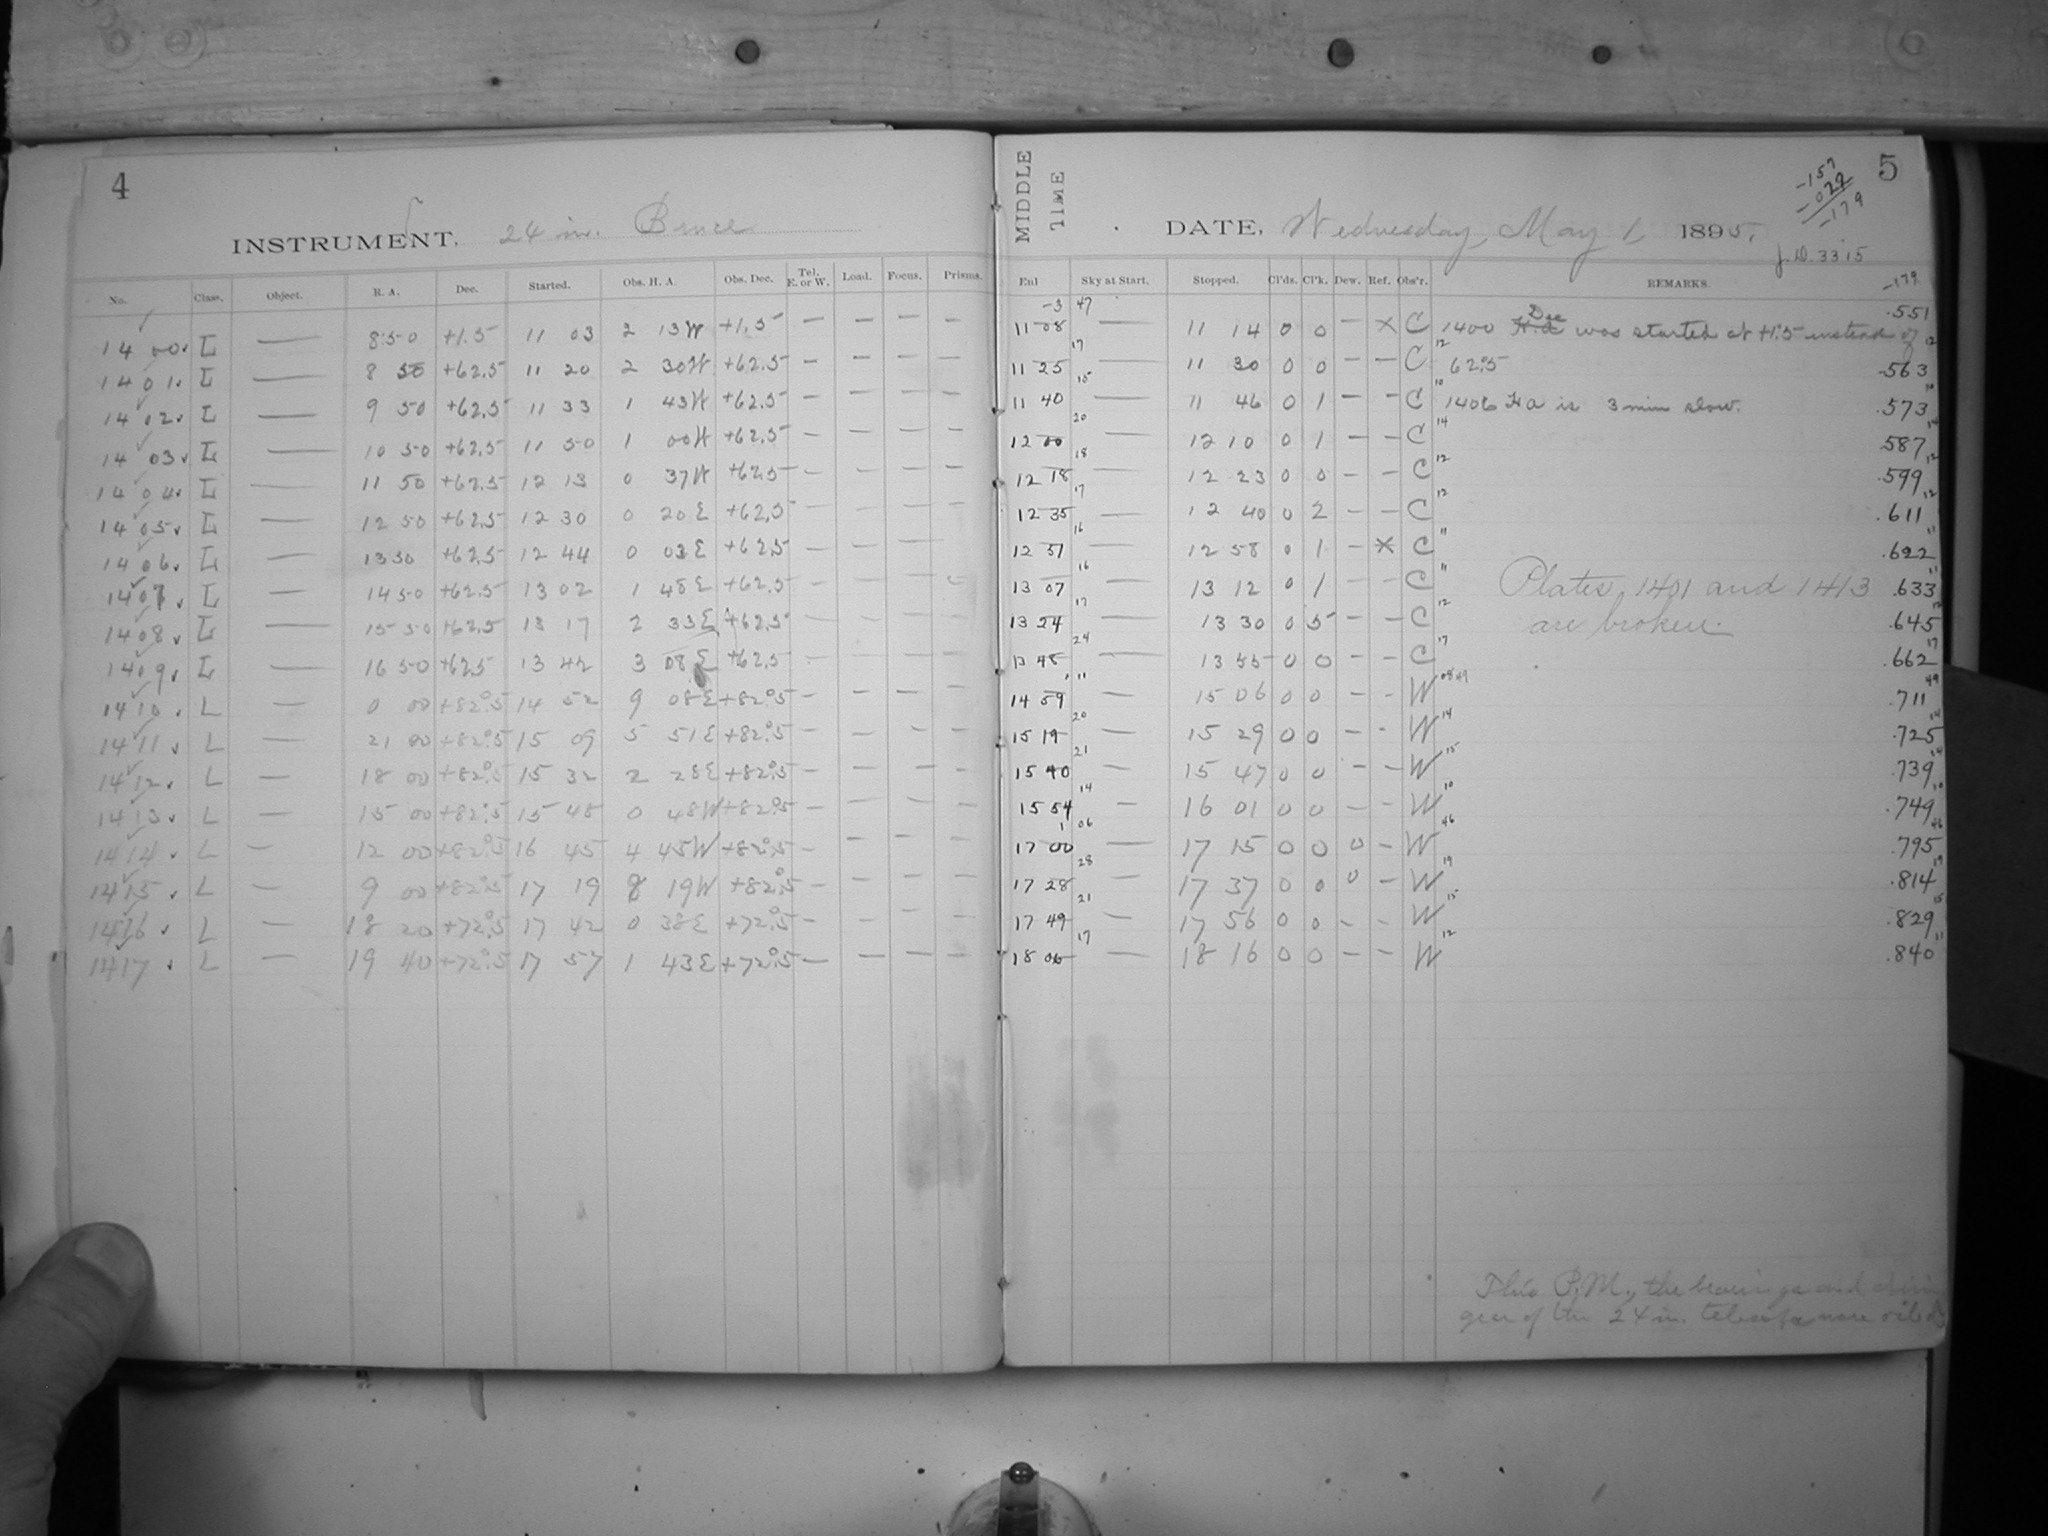 4
INSTRUMENT, 24 in. Bruce
No. Class. Object. R. A. Dec. Started. Obs. H. A. Obs. Dec. Tel. E. or W. Load. Focus. Prisms.
1400 L — 8 50 +1.5 11 03 2 13W +1.5 — — — —
1401 L — 8 50 +62.5 11 20 2 30W +62.5 — — — —
1402 L — 9 50 +62.5 11 33 1 43W +62.5 — — — —
1403 L — 10 50 +62.5 11 50 1 00W +62.5 — — — —
1404 L — 11 50 +62.5 12 13 0 37W +62.5 — — — —
1405 L — 12 50 +62.5 12 30 0 20E +62.5 — — — —
1406 L — 13 50 +62.5 12 44 0 03E +62.5 — — — —
1407 L — 14 50 +62.5 13 02 1 48E +62.5 — — — —
1408 L — 15 50 +62.5 13 17 2 33E +62.5 — — — —
1409 L — 16 50 +62.5 13 42 3 08E +62.5 — — — —
1410 L — 0 00 +82°.5 14 52 9 08E +82°.5 — — — —
1411 L — 21 00 +82°.5 15 09 5 51E +82°.5 — — — —
1412 L — 18 00 +82°.5 15 32 2 28E +82°.5 — — — —
1413 L — 15 00 +82°.5 15 48 0 48W +82°.5 — — — —
1414 L — 12 00 +82°.5 16 45 4 45W +82°.5 — — — —
1415 L — 9 00 +82°.5 17 19 8 19W +82°.5 — — — —
1416 L — 18 20 +72°.5 17 42 0 38E +72°.5 — — — —
1417 L — 19 40 +72°.5 17 57 1 43E +72°.5 — — — —
MIDDLE TIME
5
-157
-022
-179
DATE, Wednesday, May 1, 1895.
J.D. 3315
Sky at Start. Stopped. Cl'ds. Cl'k. Dew. Ref. Obs'r. REMARKS. -179
-3 47
11 08 — 11 14 0 0 — X C 1400 Dec was started at +1°.5 instead of .551
17 12 12
11 25 — 11 30 0 0 — — C 62°.5 .563
15 10 10
11 40 — 11 46 0 1 — — C 1406 Ha is 3 min slow. .573
20 14 14
12 00 — 12 10 0 1 — — C .587
18 12 12
12 18 — 12 23 0 0 — — C .599
17 12 12
12 35 — 12 40 0 2 — — C .611
16 11 11
12 51 — 12 58 0 1 — X C .622
16 11 11
13 07 — 13 12 0 1 — — C Plates 1401 and 1413 .633
17 12 12
13 24 — 13 30 0 5 — — C are broken. .645
24 17 17
13 48 — 13 55 0 0 — — C .662
1 11 49
14 59 — 15 06 0 0 — — W .711
20 14 14
15 19 — 15 29 0 0 — — W .725
21 15 14
15 40 — 15 47 0 0 — — W .739
14 10 10
15 54 — 16 01 0 0 — — W .749
1 06 46 46
17 00 — 17 15 0 0 0 — W .795
28 19 19
17 28 — 17 37 0 0 0 — W .814
21 15 15
17 49 — 17 56 0 0 — — W .829
17 12 11
18 06 — 18 16 0 0 — — W .840
This P.M., the bearings and
gear of the 24 in. telescope were oiled